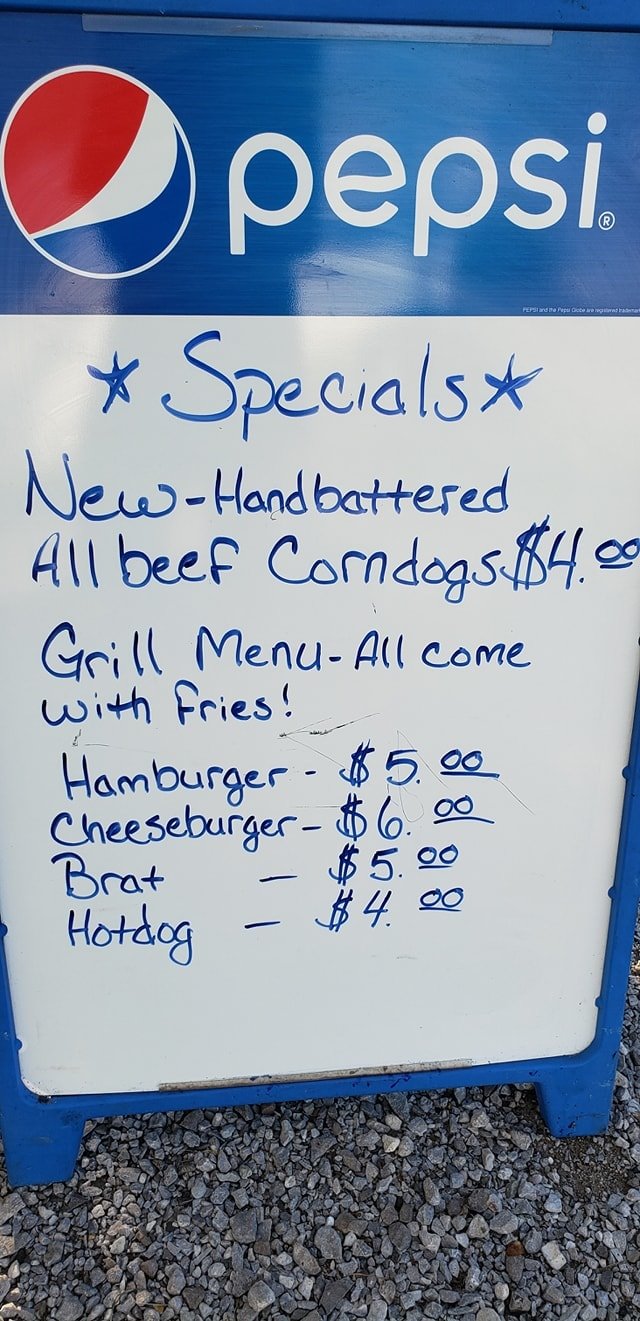 pepsi®
PEPSI and the Pepsi Globe are registered trademar
* Specials *
New-Handbattered
All beef Corndogs $4.00
Grill Menu-All come
with Fries!
Hamburger - $5.00
Cheeseburger - $6.00
Brat - $5.00
Hotdog - $4.00